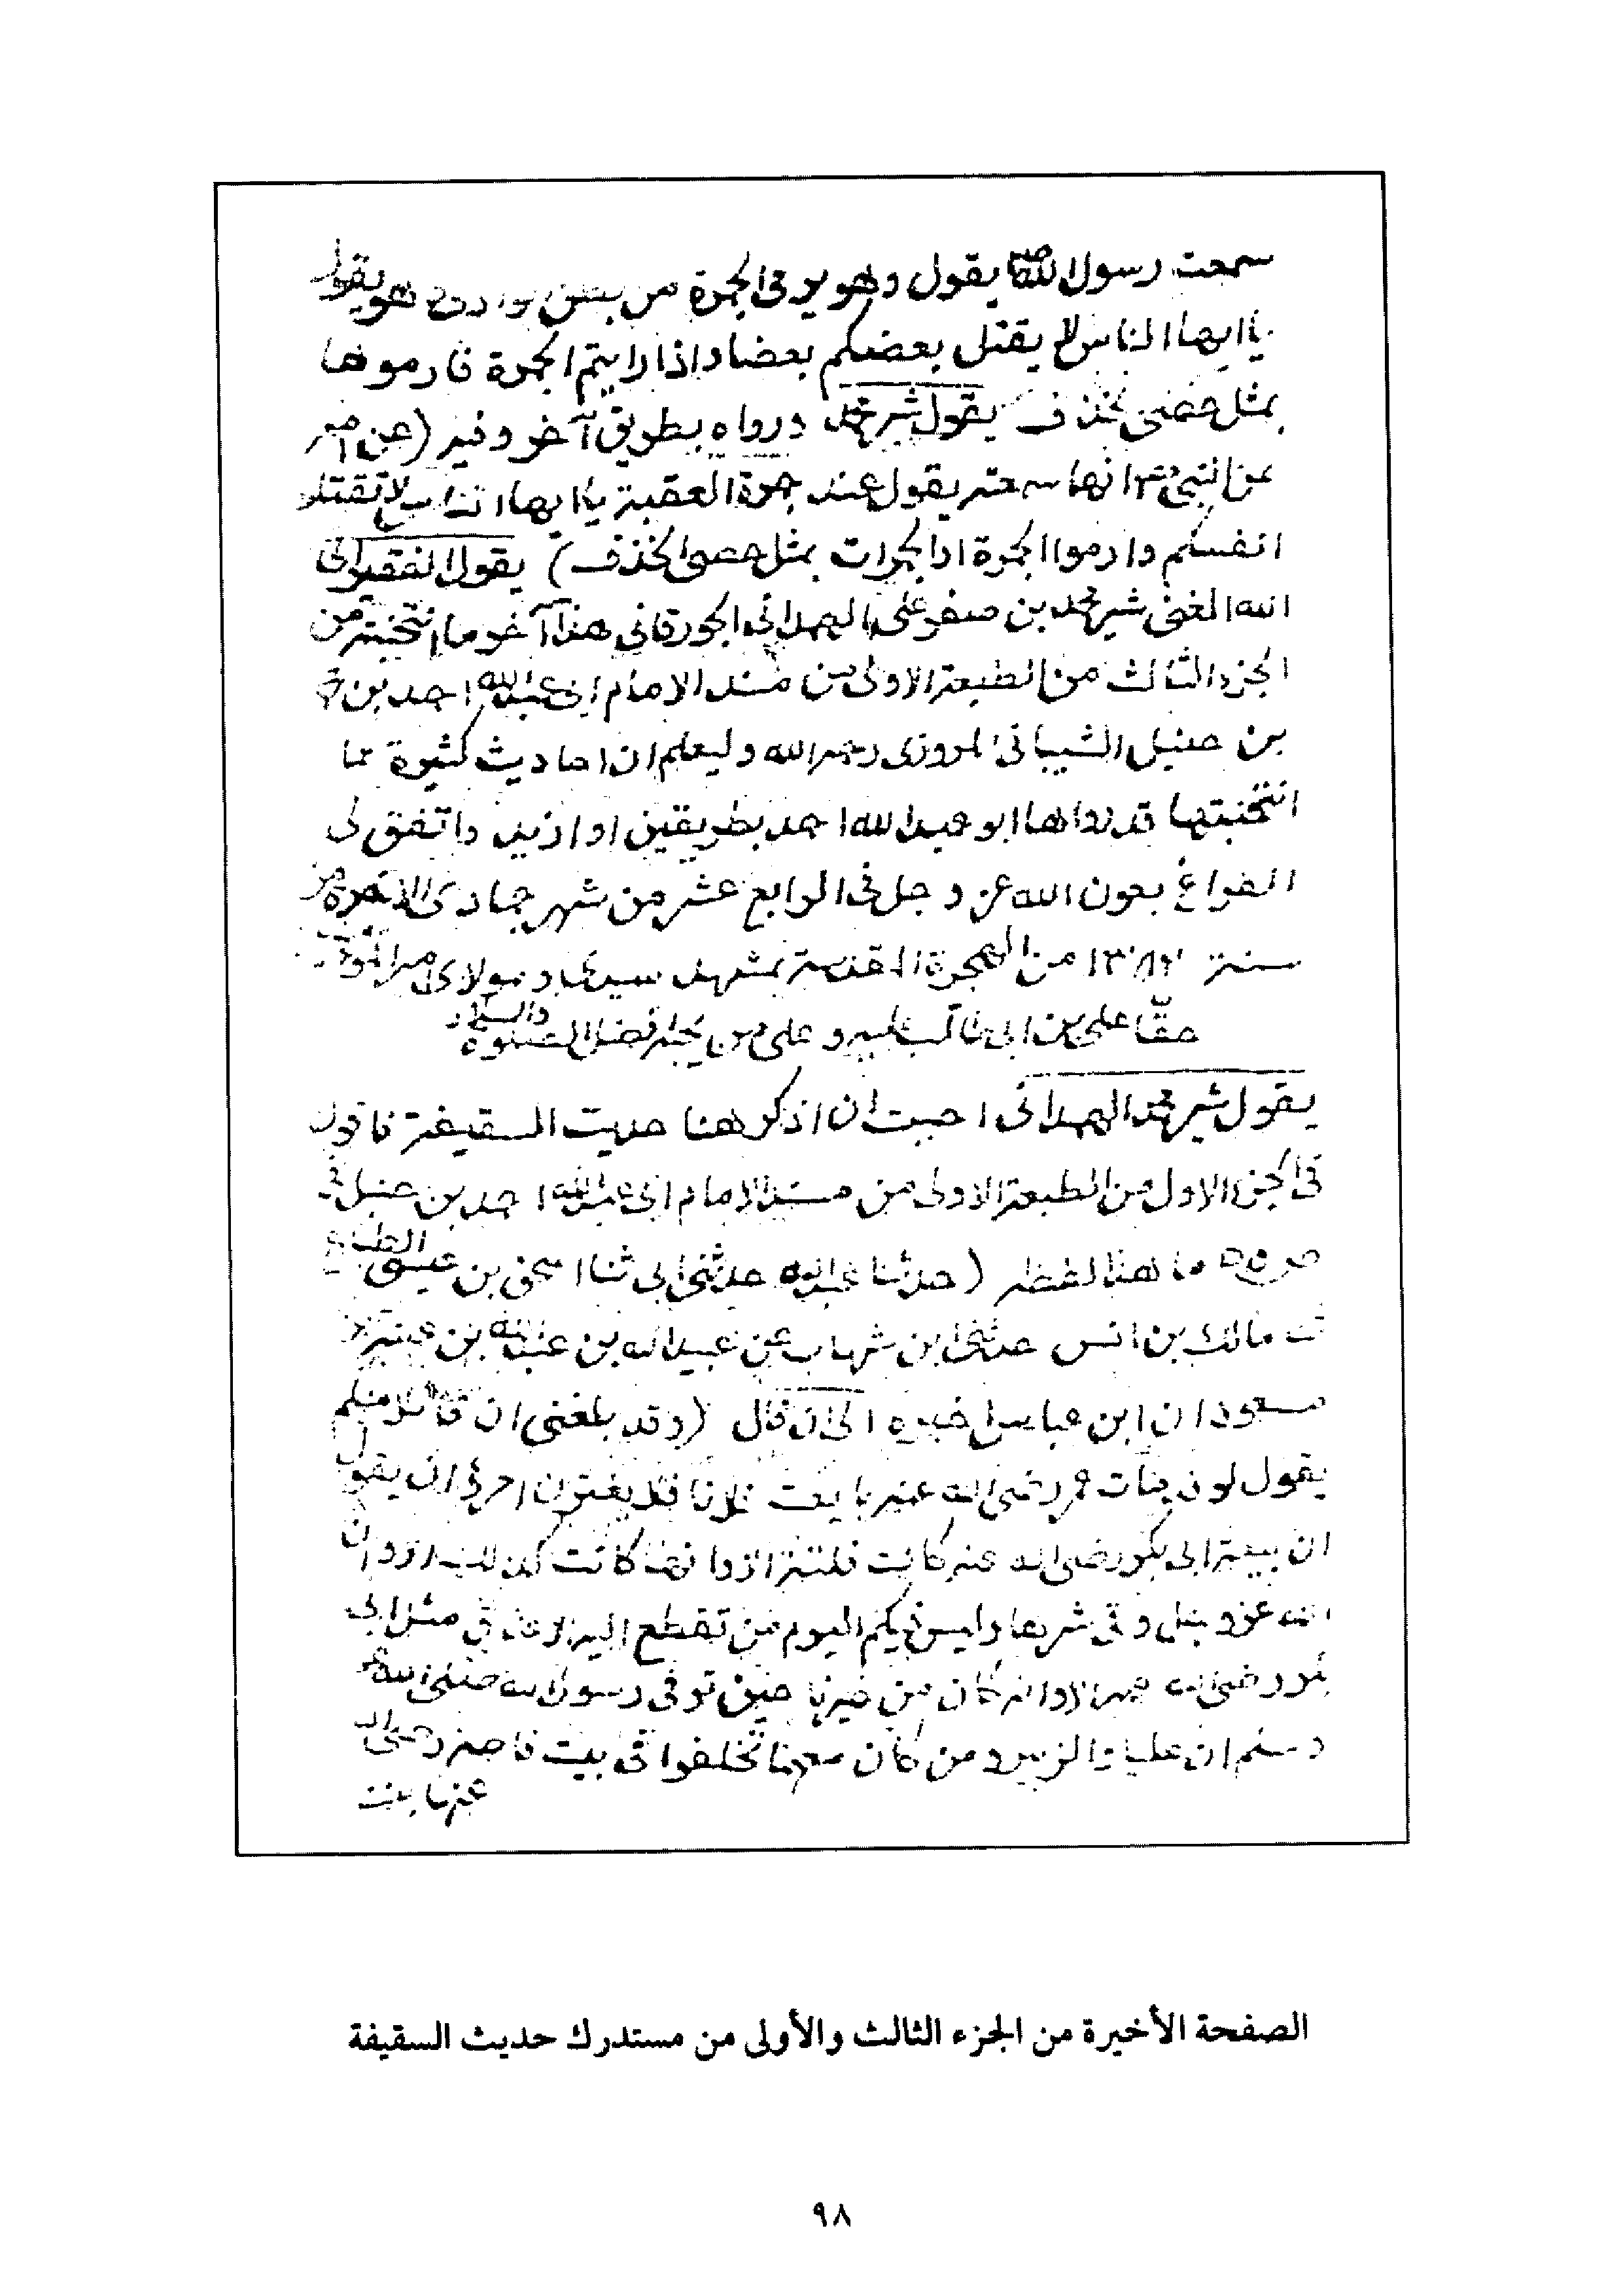 سمعت رسول الله ص يقول وهو يرمى الجمرة من بطن الوادى وهو يقول
يا ايها الناس لا يقتل بعضكم بعضا واذا رايتم الجمرة فارموها
بمثل حصى الخذف يقول شير محمد ورواه بطريق آخر وفيه (عن امه
عن النبى ص انها سمعته يقول عند جمرة العقبة يا ايها الناس لا تقتلوا
انفسكم وارموا الجمرة او الجمرات بمثل حصى الخذف) يقول الفقير الى
الله الغنى شير محمد بن صفر على الهمدانى الجورقانى هذا آخر ما انتخبته من
الجزء الثالث من الطبعة الاولى من مسند الامام ابى عبدالله احمد بن محمد
بن حنبل الشيبانى المروزى رحمه الله وليعلم ان احاديث كثيرة مما
انتخبتها قد رواها ابو عبدالله احمد بطريقين او ازيد واتفق لى
الفراغ بعون الله عز وجل فى الرابع عشر من شهر جمادى الاخرة من
سنة ١٣٨٢ من الهجرة المقدسة بمشهد سيدى ومولاى امير المؤمنين
حقّا على بن ابى طالب عليه وعلى من يحبه افضل الصلوة والسلام
يقول شير محمد الهمدانى احببت ان اذكر هنا حديث السقيفة فاقول
فى الجزء الاول من الطبعة الاولى من مسند الامام ابى عبدالله احمد بن حنبل فى
ص ٥٥ ما هذا لفظه (حدثنا عبدالله حدثنى ابى ثنا اسحق بن عيسى الطباع
ثنا مالك بن انس حدثنى ابن شهاب عن عبيدالله بن عبدالله بن عتبة بن
مسعود ان ابن عباس اخبره الى ان قال (وقد بلغنى ان قائلا منكم
يقول لو قد مات عمر رضى الله عنه بايعت فلانا فلا يغترن امرؤ ان يقول
ان بيعة ابى بكر رضى الله عنه كانت فلتة الا وانها كانت كذلك الا وان
الله عز وجل وقى شرها وليس فيكم اليوم من تقطع اليه الاعناق مثل ابى
بكر رضى الله عنه الا وانه كان من خيرنا حين توفى رسول الله صلى الله عليه
وسلم ان عليا والزبير ومن كان معهما تخلفوا فى بيت فاطمة رضى الله
عنها بنت
الصفحة الأخيرة من الجزء الثالث والأولى من مستدرك حديث السقيفة
٩٨